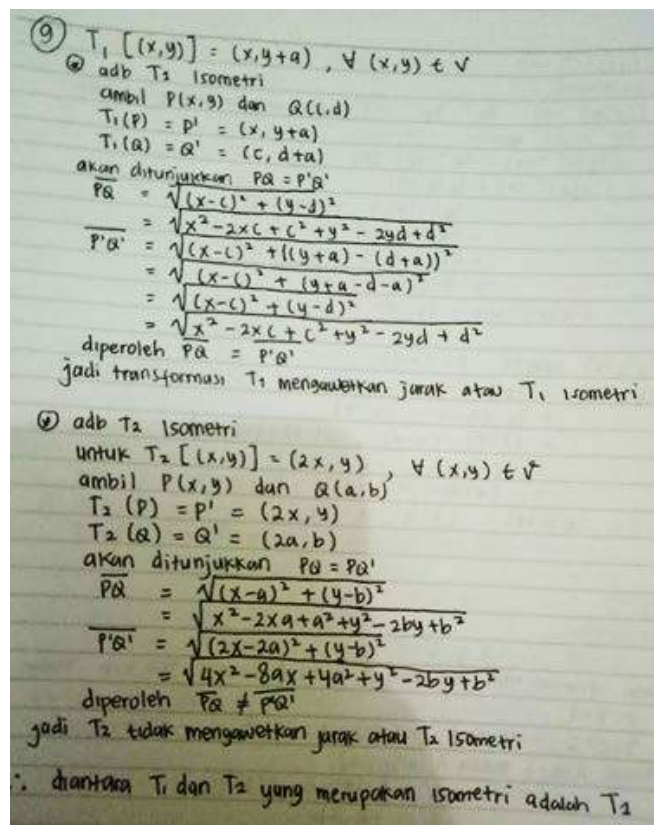 9 T₁ [(x,y)] = (x,y+a) , ∀ (x,y) ∈ V
adb T₂ Isometri
ambil P(x,y) dan Q(c,d)
T₁(P) = P' = (x, y+a)
T₁(Q) = Q' = (c, d+a)
akan ditunjukkan PQ = P'Q'
PQ = √(x-c)² + (y-d)²
= √x² - 2xc + c² + y² - 2yd + d²
P'Q' = √(x-c)² + ((y+a) - (d+a))²
= √(x-c)² + (y+a-d-a)²
= √(x-c)² + (y-d)²
= √x² - 2xc + c² + y² - 2yd + d²
diperoleh PQ = P'Q'
jadi transformasi T₁ mengawetkan jarak atau T₁ isometri
adb T₂ Isometri
untuk T₂ [(x,y)] = (2x,y) , ∀ (x,y) ∈ V
ambil P(x,y) dan Q(a,b)
T₂ (P) = P' = (2x,y)
T₂ (Q) = Q' = (2a,b)
akan ditunjukkan PQ = PQ'
PQ = √(x-a)² + (y-b)²
= √x² - 2xa + a² + y² - 2by + b²
P'Q' = √(2x-2a)² + (y-b)²
= √4x² - 8ax + 4a² + y² - 2by + b²
diperoleh PQ ≠ P'Q'
jadi T₂ tidak mengawetkan jarak atau T₂ Isometri
∴ diantara T₁ dan T₂ yang merupakan isometri adalah T₂